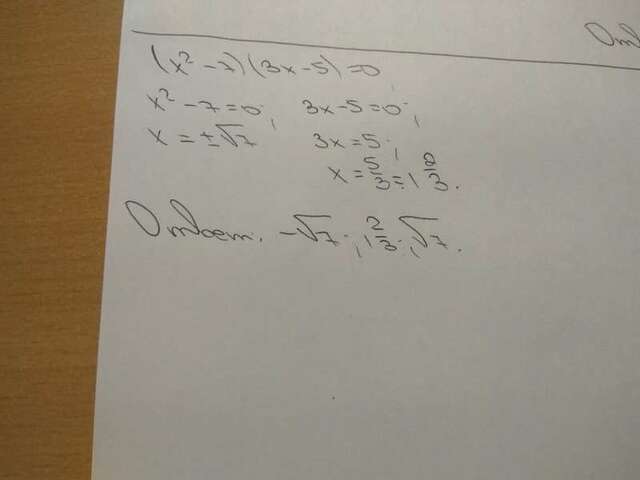 Отв
(x² - 7)(3x - 5) = 0
x² - 7 = 0; 3x - 5 = 0;
x = ±√7 3x = 5;
x = 5/3 = 1 2/3.
Ответ. -√7; 1 2/3; √7.